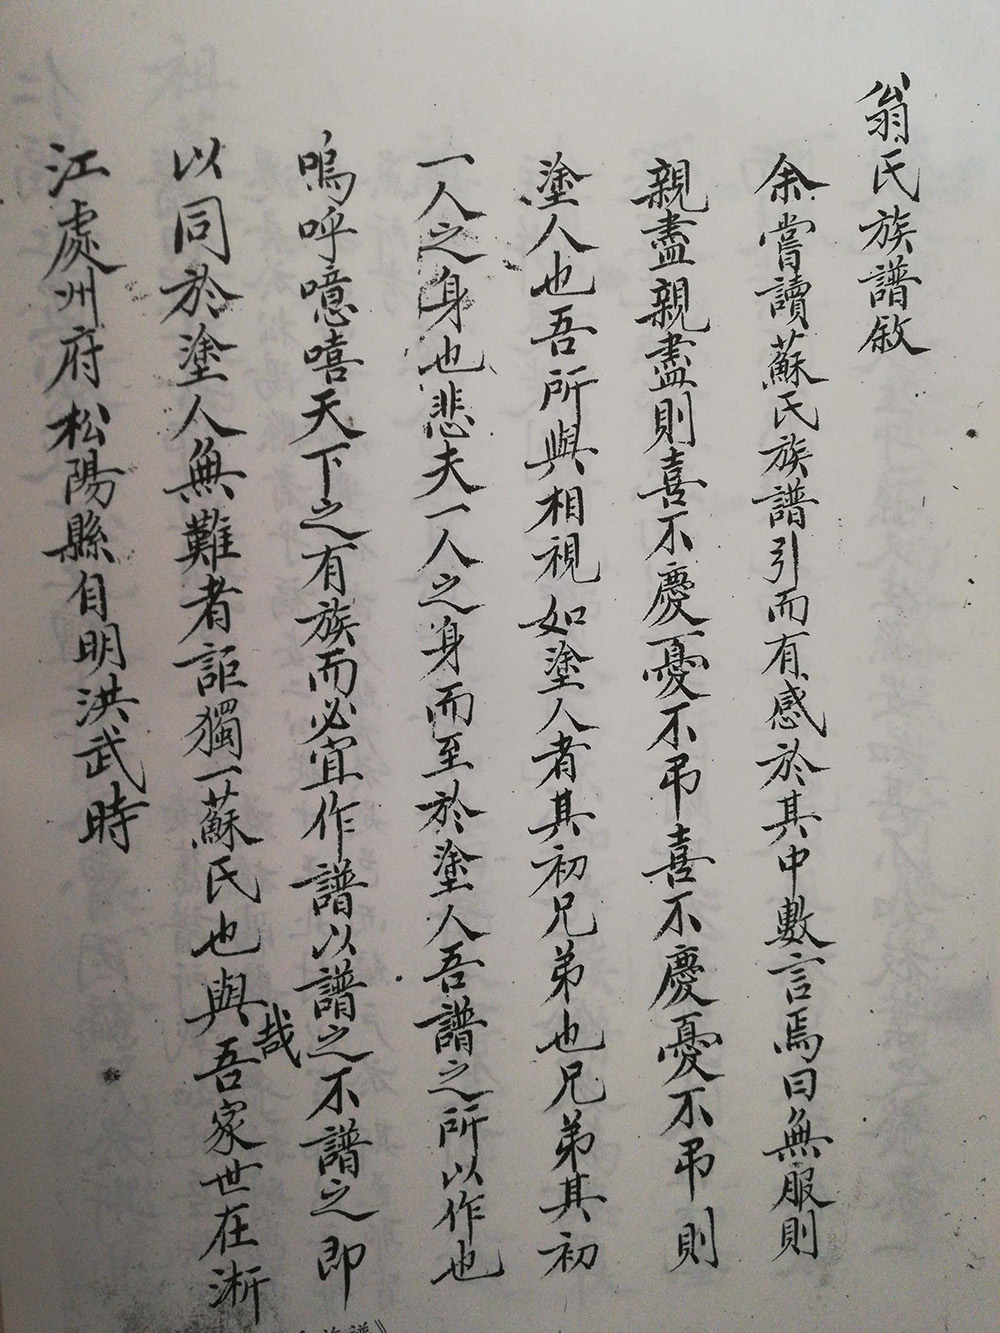 翁氏族譜敘
余嘗讀蘇氏族譜引而有感於其中數言焉曰無服則
親盡親盡則喜不慶憂不弔喜不慶憂不弔則
塗人也吾所與相視如塗人者其初兄弟也兄弟其初
一人之身也悲夫一人之身而至於塗人吾譜之所以作也
嗚呼噫嘻天下之有族而必宜作譜以譜之不譜之即
以同於塗人無難者詎獨一蘇氏也與哉吾家世在淅
江處州府松陽縣自明洪武時
族譜》